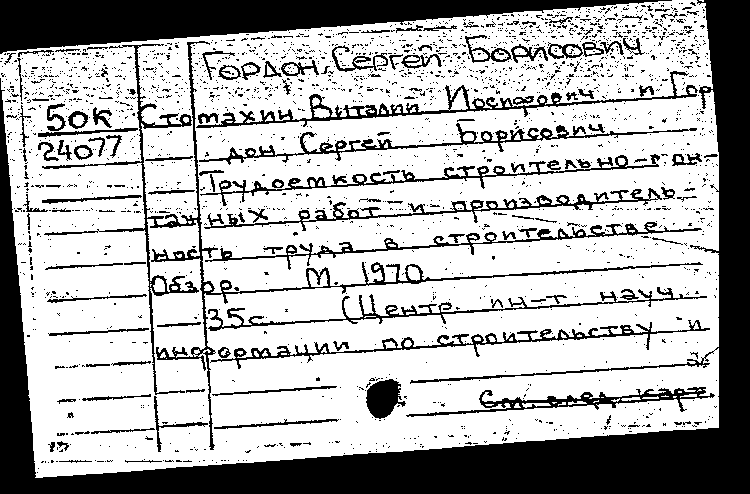 Гордон, Сергей Борисович
50к Стомахин, Виталий Иосифович и Гор
24077 дон, Сергей Борисович.
Трудоемкость строительно-мон-
тажных работ и производитель-
ность труда в строительстве.
Обзор. М., 1970.
35с. (Центр. ин-т науч.
информации по строительству и
См. след. карт.